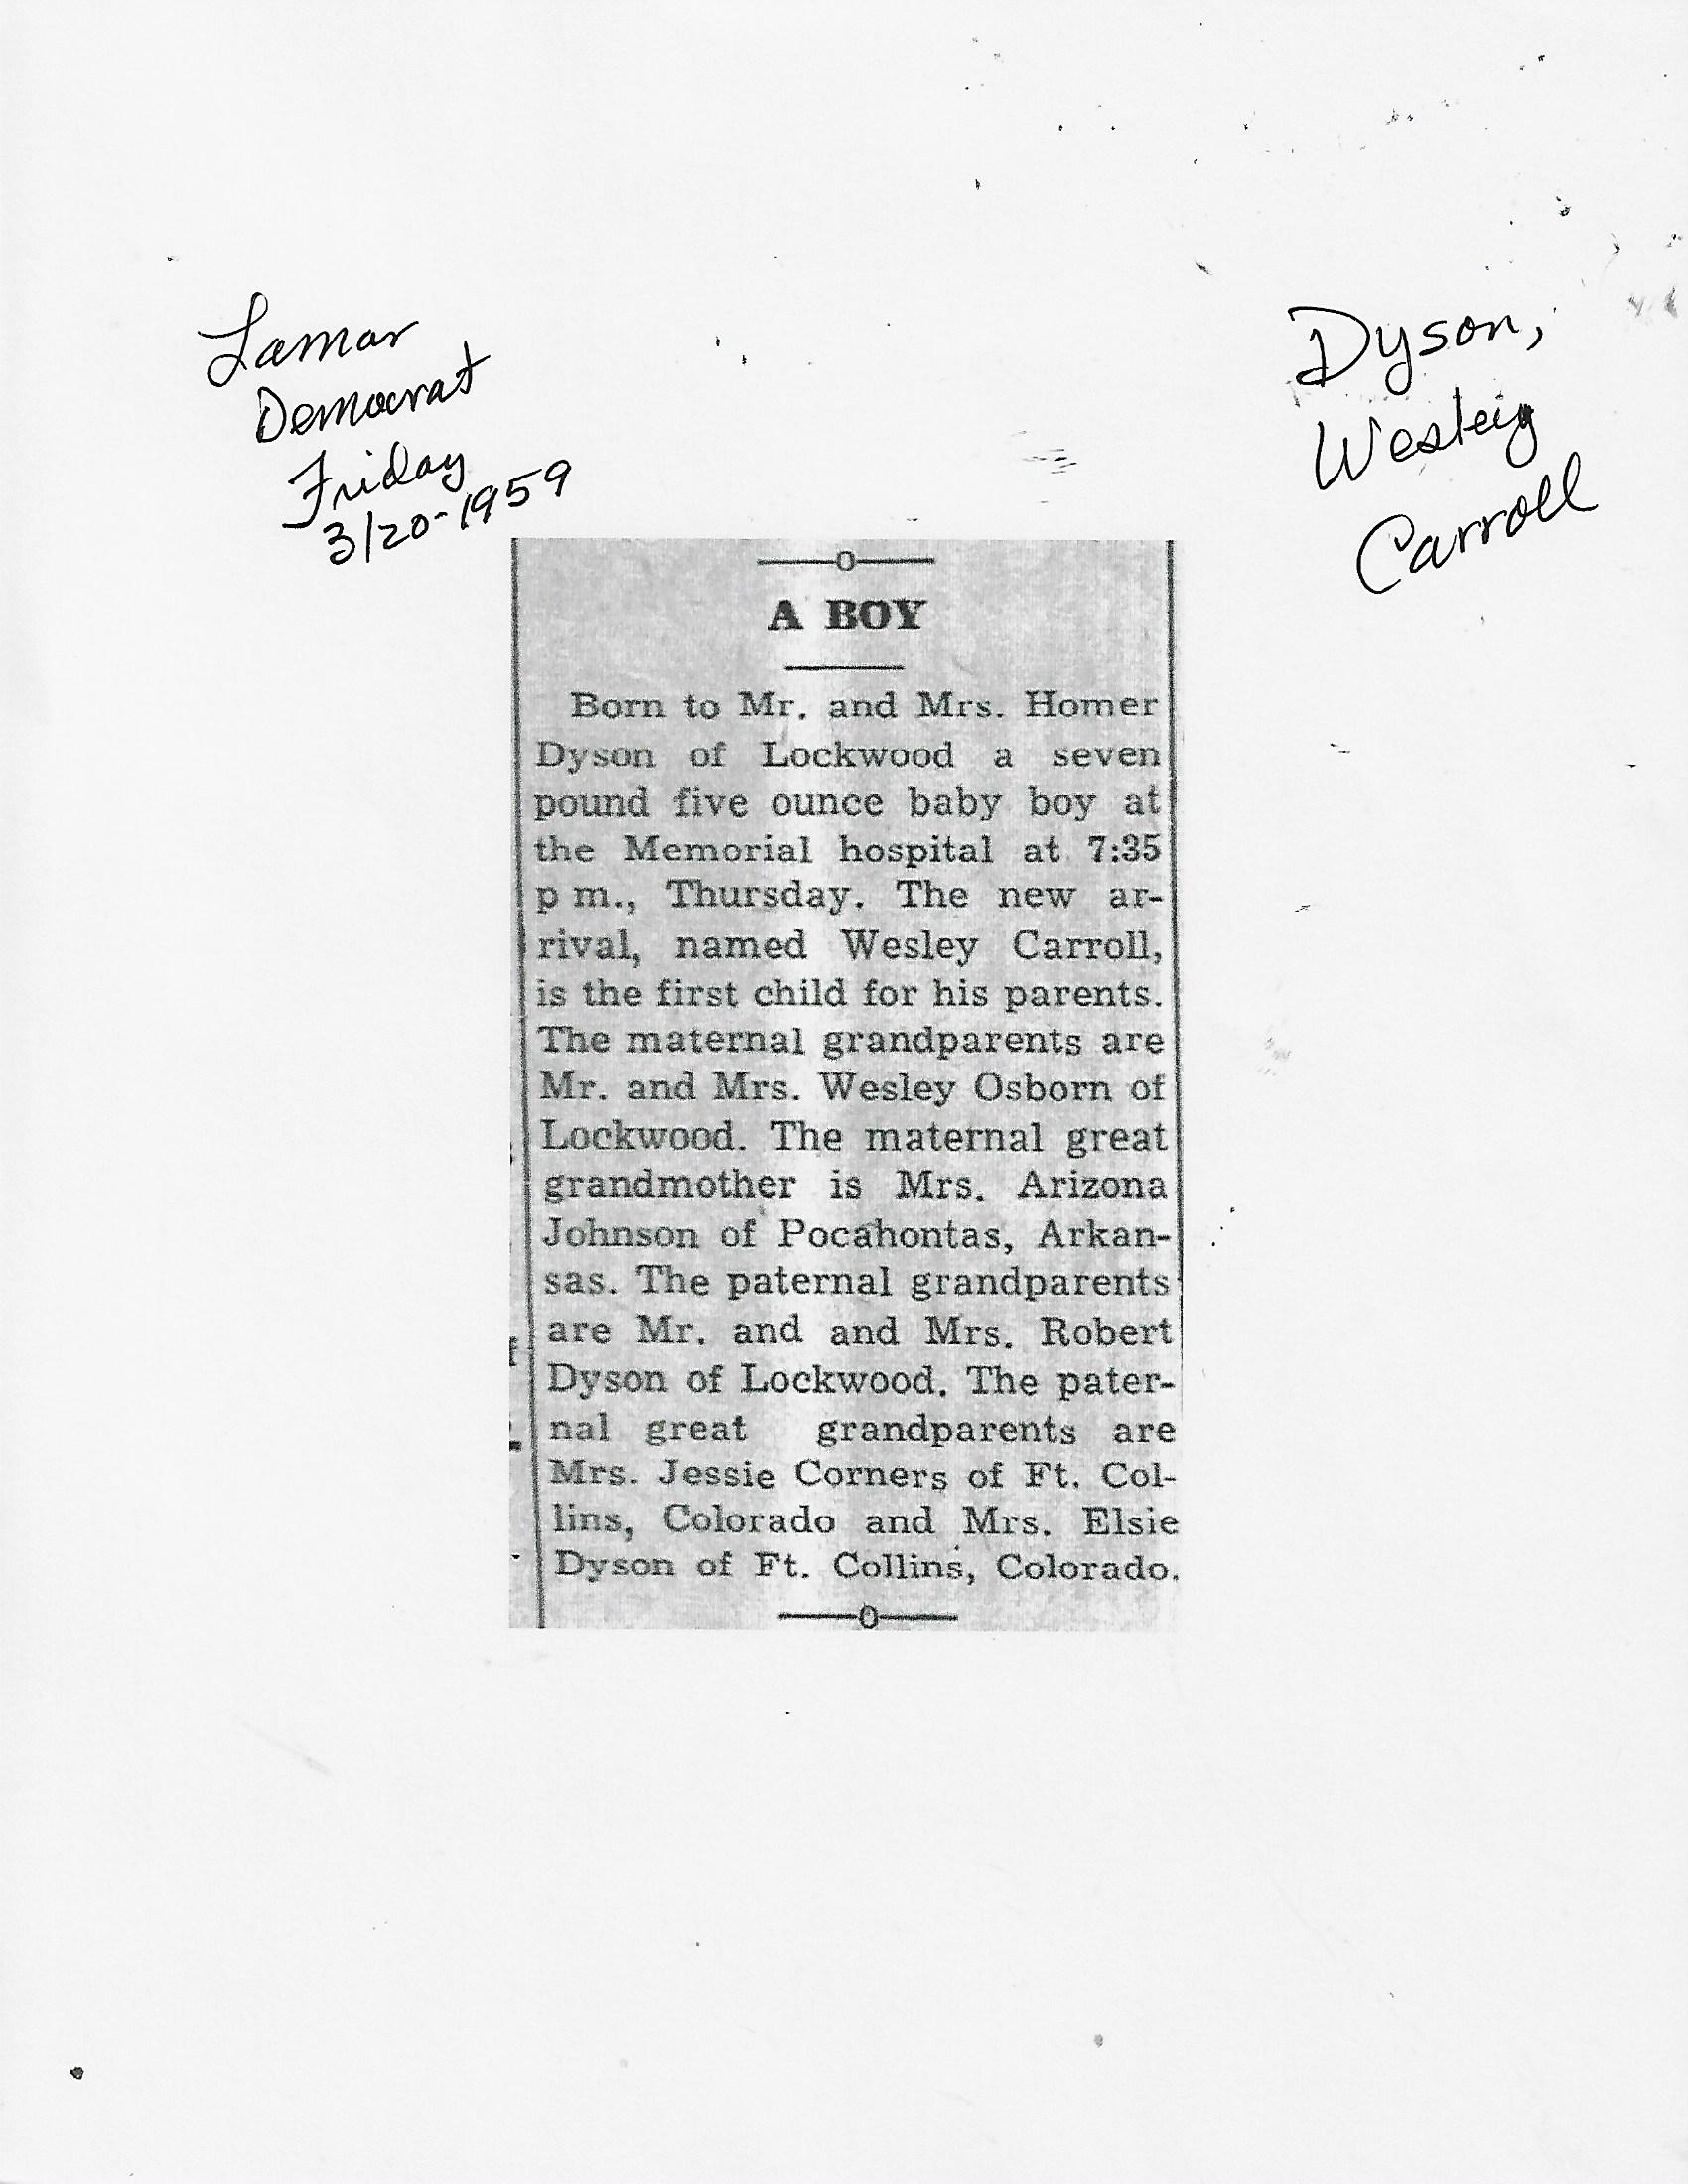 Lamar
Democrat
Friday
3/20-1959
Dyson,
Wesley
Carroll
A BOY
Born to Mr. and Mrs. Homer
Dyson of Lockwood a seven
pound five ounce baby boy at
the Memorial hospital at 7:35
p m., Thursday. The new ar-
rival, named Wesley Carroll,
is the first child for his parents.
The maternal grandparents are
Mr. and Mrs. Wesley Osborn of
Lockwood. The maternal great
grandmother is Mrs. Arizona
Johnson of Pocahontas, Arkan-
sas. The paternal grandparents
are Mr. and and Mrs. Robert
Dyson of Lockwood. The pater-
nal great grandparents are
Mrs. Jessie Corners of Ft. Col-
lins, Colorado and Mrs. Elsie
Dyson of Ft. Collins, Colorado.